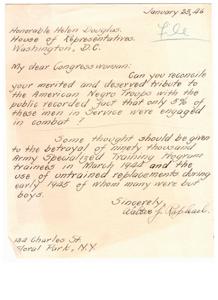 January 25, 46
File
Honorable Helen Douglas.
House of Representatives.
Washington, D.C.
My dear Congresswoman:
Can you reconcile
your merited and deserved tribute to
the American Negro Troops with the
public recorded fact that only 5% of
these men in Service were engaged
in combat?
Some thought should be given
to the betrayal of ninety thousand
Army Specialized Training Program
trainees in March 1944 and the
use of untrained replacements during
early 1945 of whom many were but
boys.
Sincerely,
Walter J. Raphael.
Charles St.
Floral Park, N.Y.